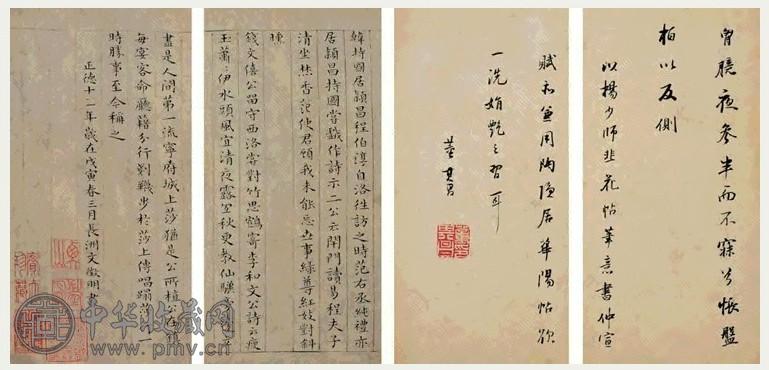 胷臆夜參半而不寐兮悵盤
桓以反側
以楊少師韭花帖筆意書仲宣
賦和兼用陶隱居華陽帖欲
一洗娟艷之習耳
董其昌
韓持國居潁昌程伯淳自洛往訪之時范右丞純禮亦
居潁昌持國嘗戲作詩示二公云閉門讀易程夫子
清坐焚香范使君顧我未能忘世事綠尊紅妓對斜
曛
錢文僖公留守西洛嘗對竹思鶴寄李和文公詩云瘦
玉蕭〻伊水頭風宜清夜露宜秋更教仙驥
盡是人間第一流寧府城上莎猶是公所植公在
每宴客命廳籍分行剗襪步於莎上傳唱踏莎一
時勝事至今稱之
正德十三年歲在戊寅春三月長洲文徵明書
中华收藏网
www.pmv.cn